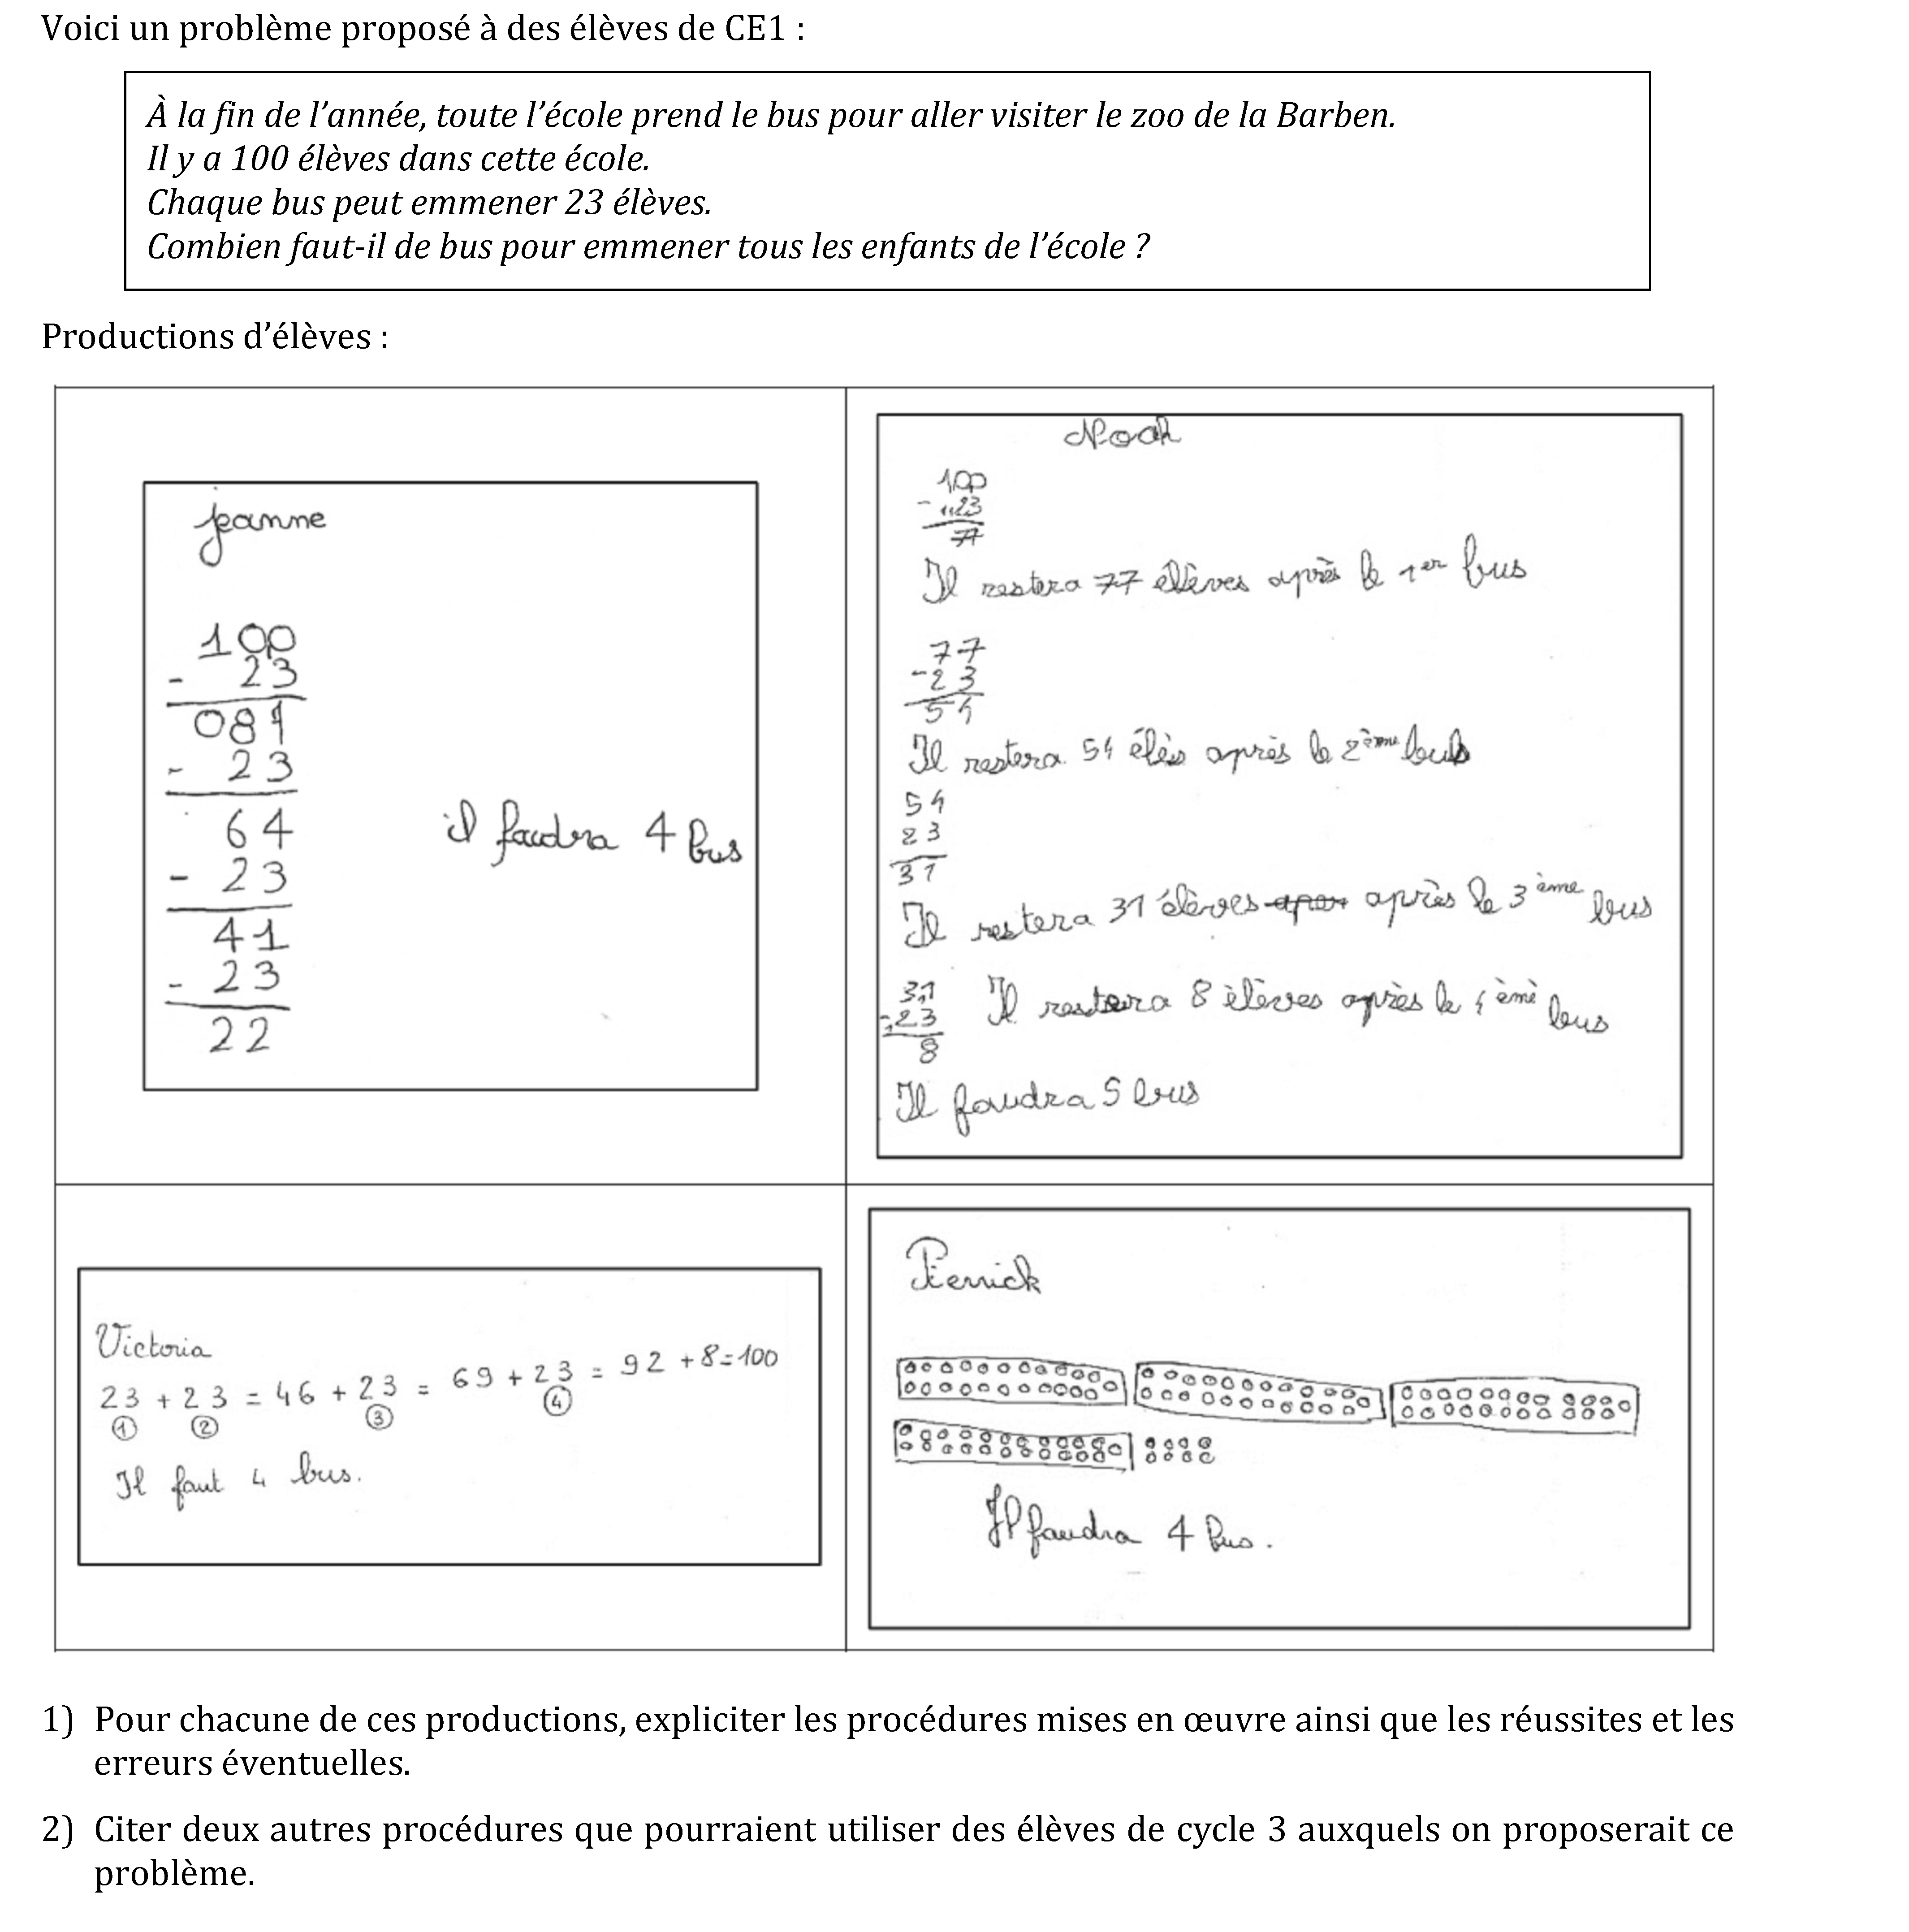 Voici un problème proposé à des élèves de CE1 :
À la fin de l’année, toute l’école prend le bus pour aller visiter le zoo de la Barben.
Il y a 100 élèves dans cette école.
Chaque bus peut emmener 23 élèves.
Combien faut-il de bus pour emmener tous les enfants de l’école ?
Productions d’élèves :
jeanne
100
- 23
081
- 23
64
- 23
41
- 23
22
il faudra 4 bus
Noah
100
- 23
77
Il restera 77 élèves après le 1er bus
77
- 23
54
Il restera 54 élès après le 2ème bus
54
23
31
Il restera 31 élèves après le 3ème bus
31
- 23
8
Il restera 8 élèves après le 4ème bus
Il faudra 5 bus
Victoria
23 + 23 = 46 + 23 = 69 + 23 = 92 + 8 = 100
① ② ③ ④
Il faut 4 bus.
Pierrick
Il faudra 4 bus.
1) Pour chacune de ces productions, expliciter les procédures mises en œuvre ainsi que les réussites et les
erreurs éventuelles.
2) Citer deux autres procédures que pourraient utiliser des élèves de cycle 3 auxquels on proposerait ce
problème.